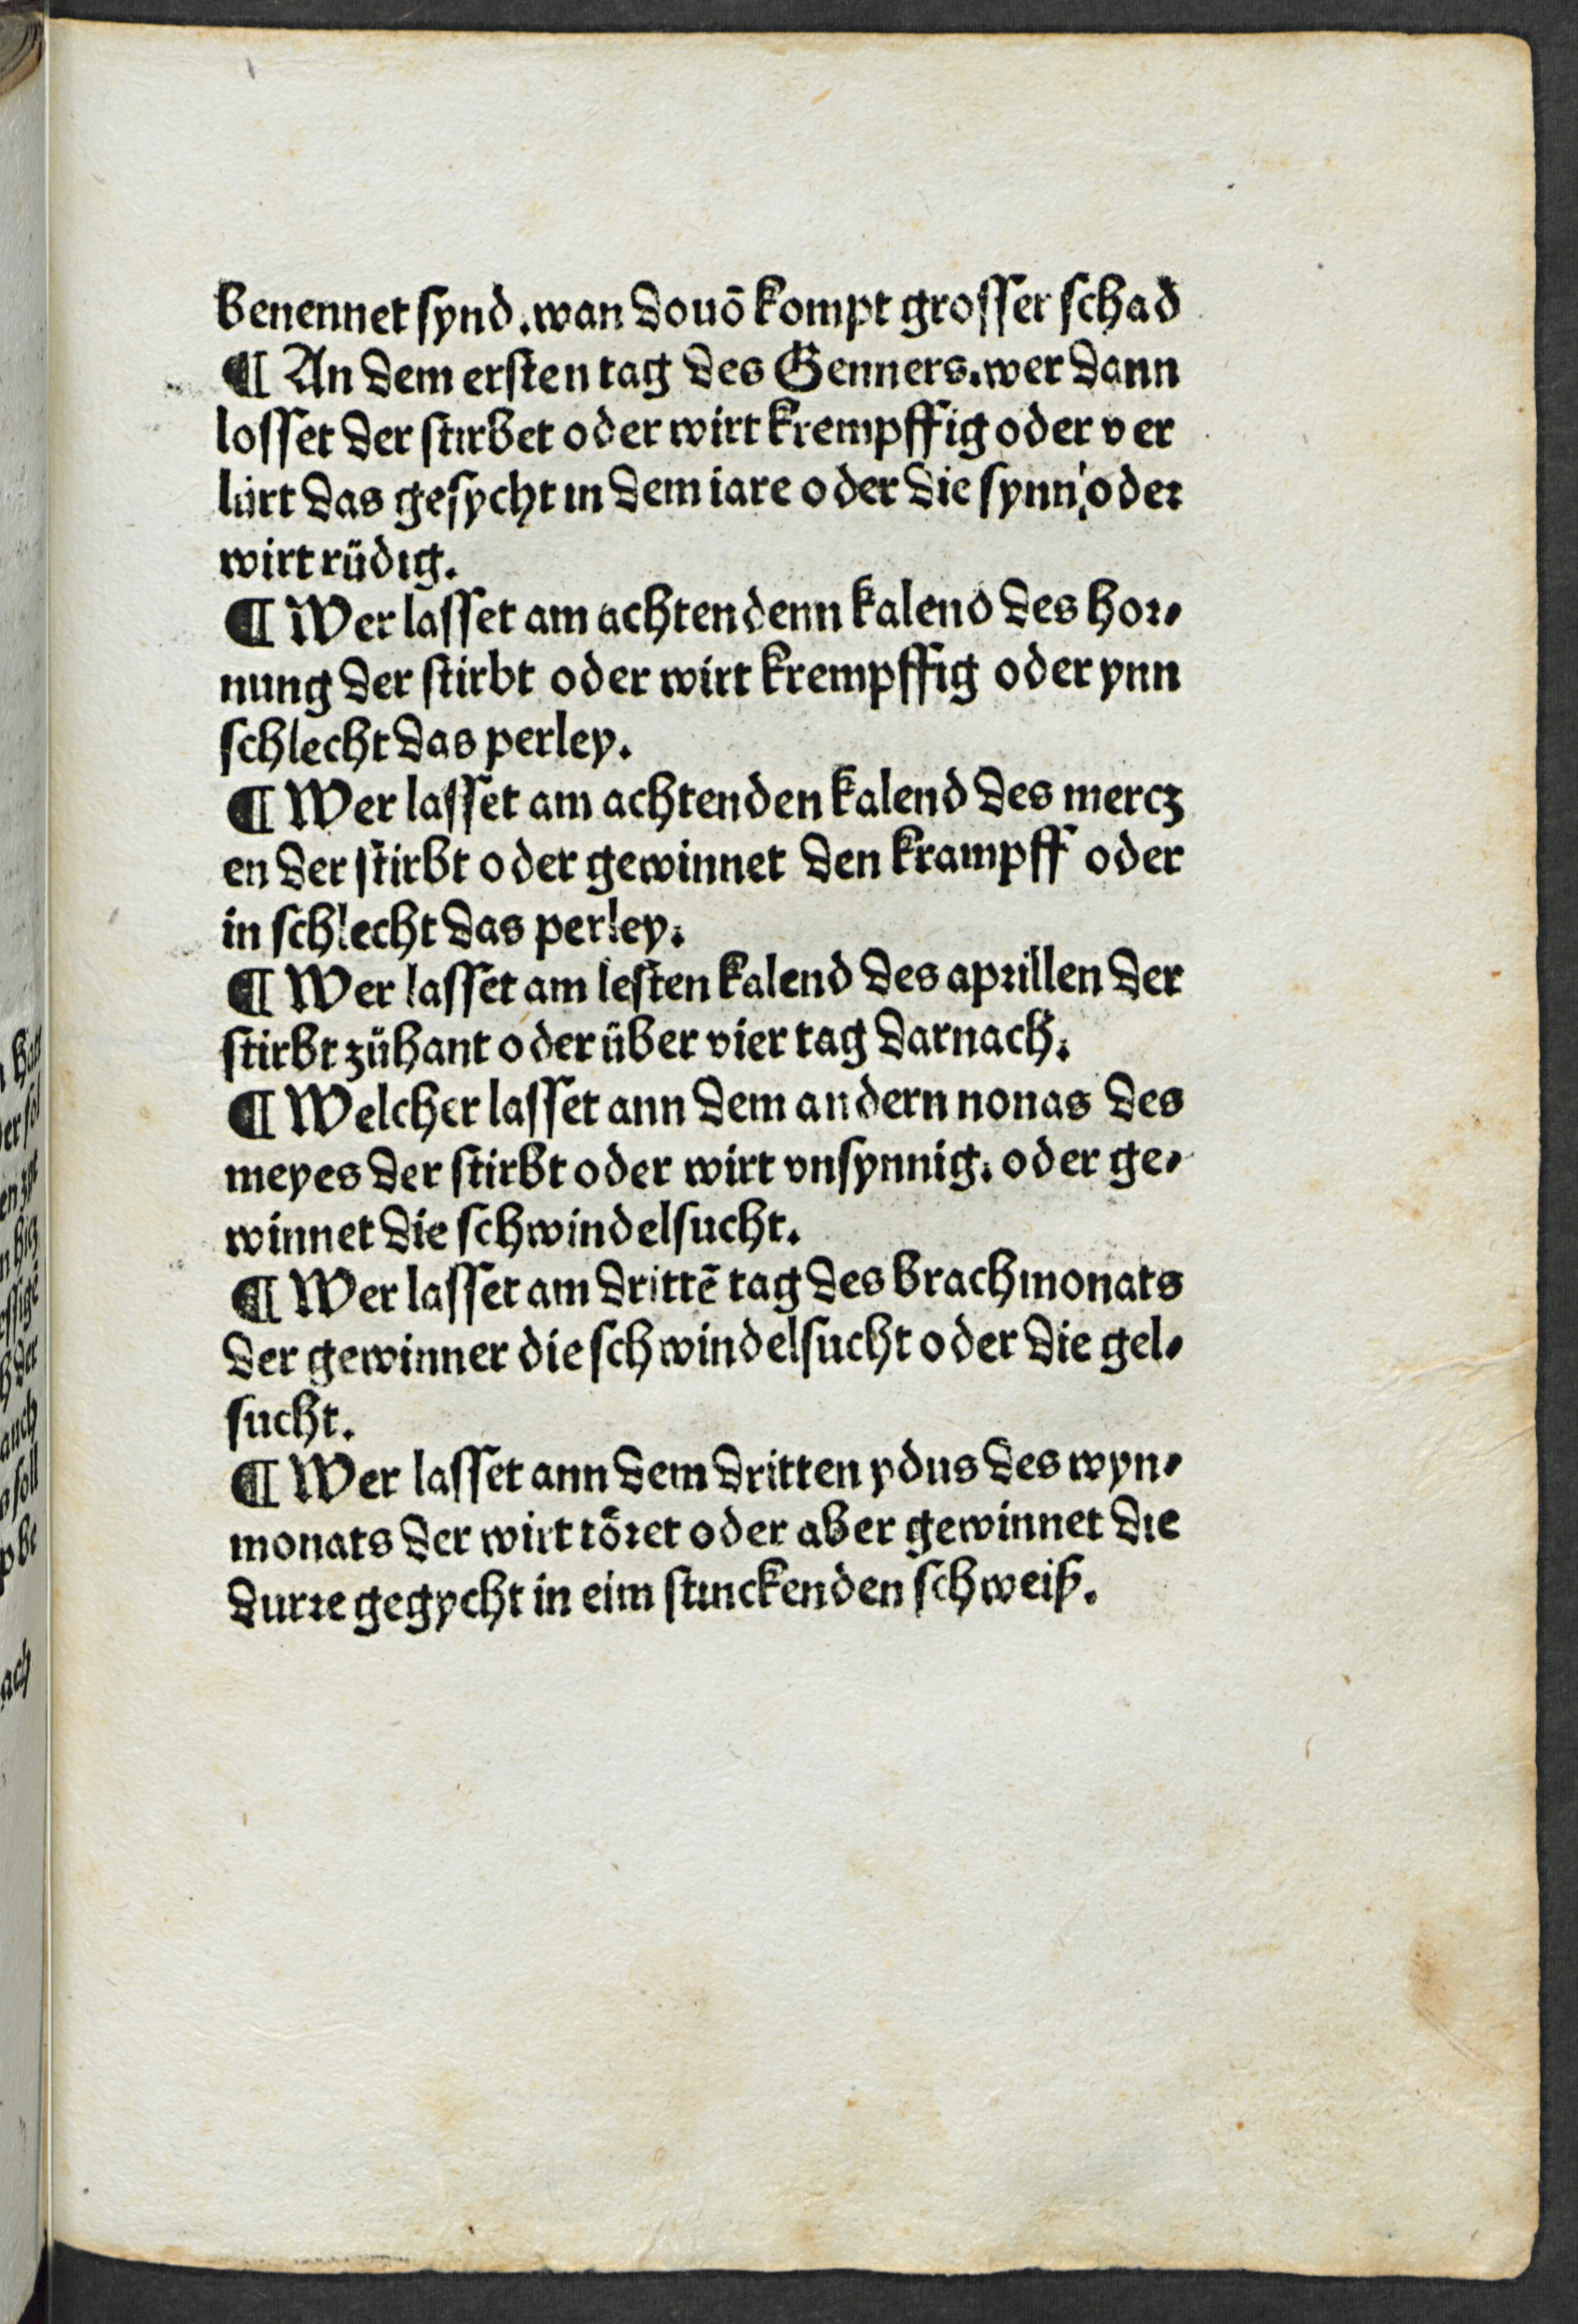 benennet synd. wan douō kompt grosser schad
¶ An dem ersten tag des Genners. wer dann
losset der stirbet oder wirt krempffig oder ver
lürt das gesycht in dem iare oder die synn oder
wirt rüdig.
¶ Wer lasset am achten denn kalend des hor⸗
nung der stirbt oder wirt krempffig oder ynn
schlecht das perley.
¶ Wer lasset am achtenden kalend des mercz
en der stirbt oder gewinnet den krampff oder
in schlecht das perley.
¶ Wer lasset am lesten kalend des aprillen der
stirbt zühant oder über vier tag darnach.
¶ Welcher lasset ann dem andern nonas des
meyes der stirbt oder wirt vnsynnig. oder ge⸗
winnet die schwindelsucht.
¶ Wer lasset am drittē tag des brachmonats
der gewinner die schwindelsucht oder die gel⸗
sucht.
¶ Wer lasset ann dem dritten ydus des wyn⸗
monats der wirt töret oder aber gewinnet die
durre gegycht in eim stinckenden schweiß.